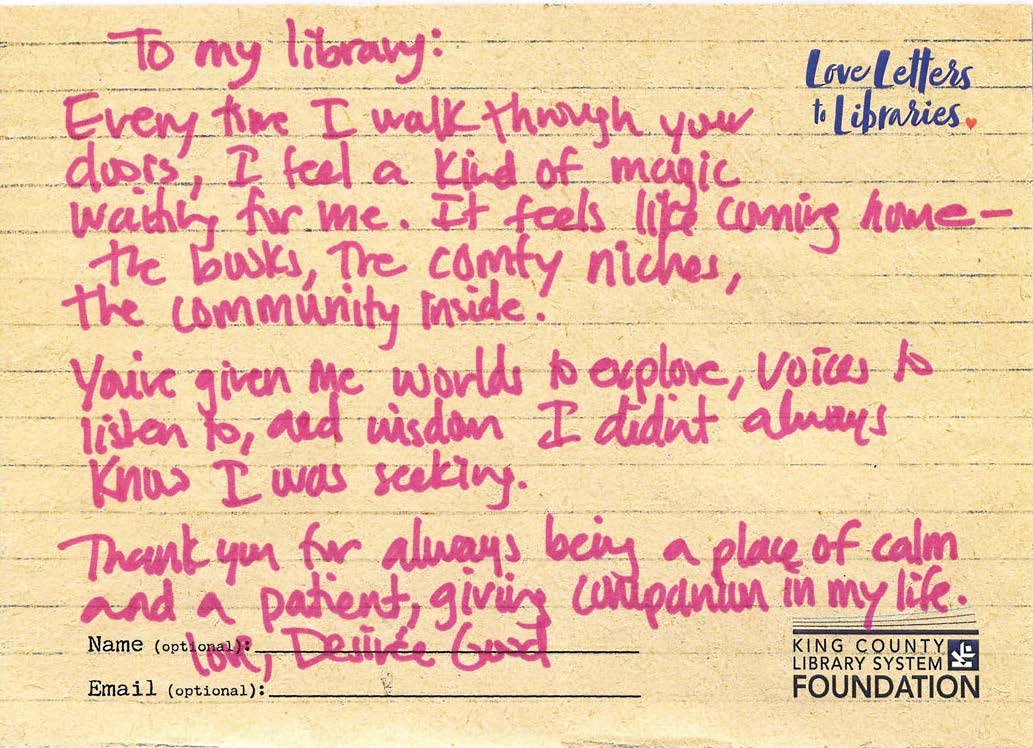 To my library:
Love Letters
to Libraries.
Every time I walk through your
doors, I feel a kind of magic
waiting for me. It feels like coming home—
the books, the comfy niches,
the community inside.
You've given me worlds to explore, voices to
listen to, and wisdom I didn't always
know I was seeking.
Thank you for always being a place of calm
and a patient, giving companion in my life.
Name (optional):
Love, Desirée Good
Email (optional):
KING COUNTY
LIBRARY SYSTEM
FOUNDATION